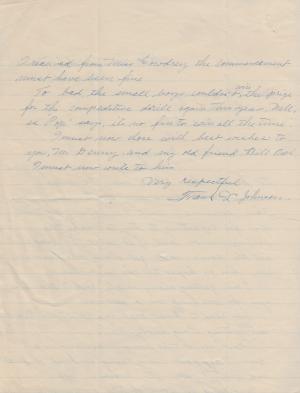 I received from Miss Cowdrey the commencement
must have been fine.
To bad the small boys couldn't win the prize
for the competative drill again this year. Well,
as "Pop" says, it no fun to win all the time.
I must now close with best wishes to
you, Mr Denny, and my old friend Bill
I must now write to him.
Very respectful,
Frank D. Johnson